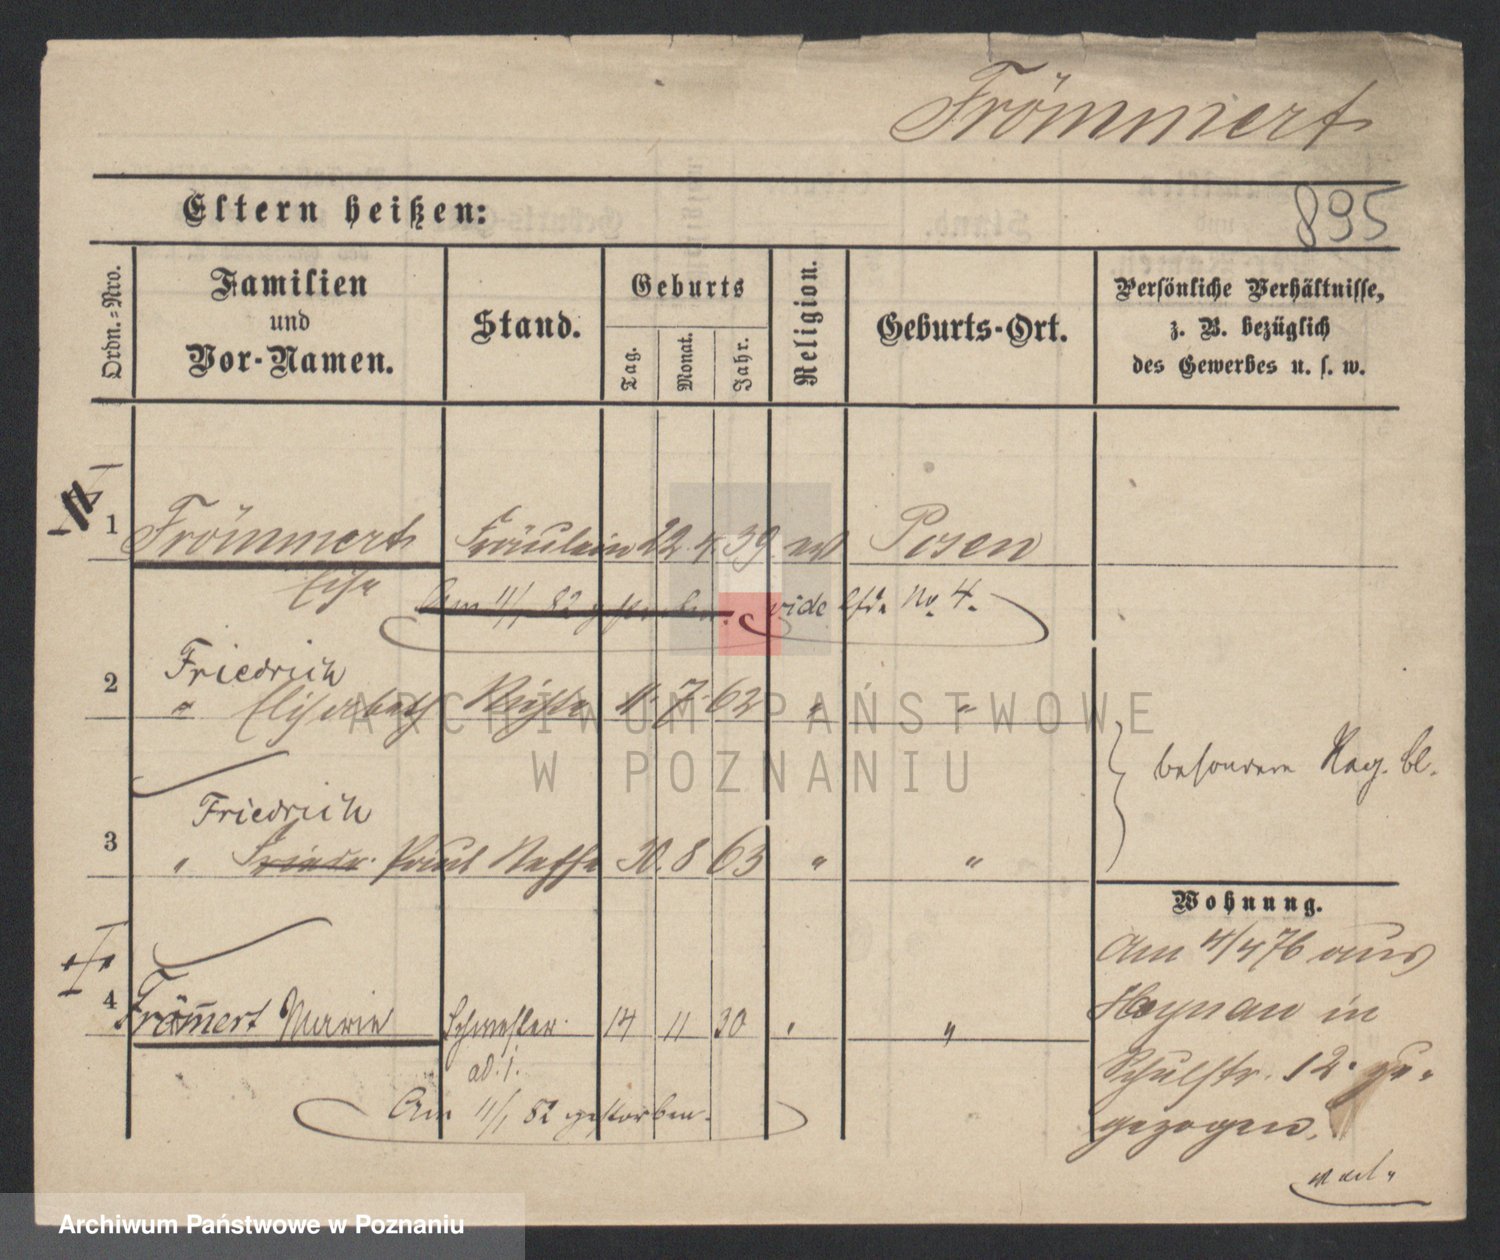 Frömmert
Eltern heißen:
895
Ordn.=Nro.
Familien
und
Vor-Namen.
Stand.
Geburts
Tag.
Monat.
Jahr.
Religion.
Geburts-Ort.
Persönliche Verhältnisse,
z. B. bezüglich
des Gewerbes u. s. w.
1 Frömmert Fräulein 22. 4. 39. ev Posen
Am 11/1 82 gestorben. vide lfde No. 4.
Friedrich
2 " Elisabeth Nichte 11. 7. 62 " "
besondere Reg. bl.
Friedrich
3 " Friedr. Paul Neffe 30. 8 63 " "
Wohnung.
4 Frömert Marie Schwester 14 11 30 " "
ad. 1.
Am 11/1 82 gestorben.
Am 4/4 76 aus
Haynau in
Schulstr. 12. zu-
gezogen.
ARCHIWUM PAŃSTWOWE
W POZNANIU
Archiwum Państwowe w Poznaniu